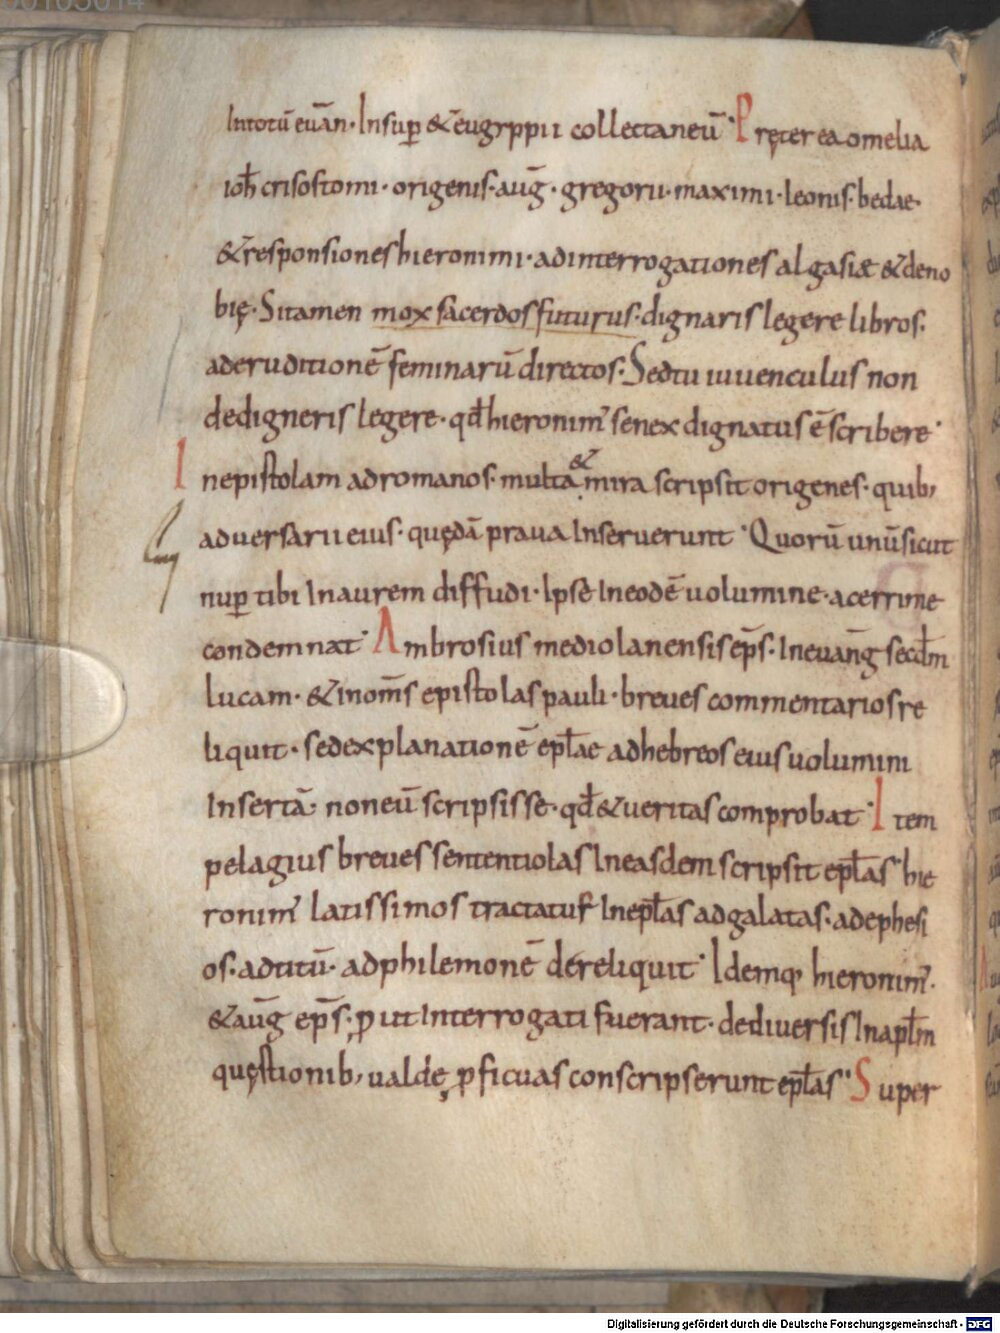 Intotū euān· Insuꝑ &eugyppii collectaneū· Pręterea omelia
ioħ crisostomi· origenis· auḡ· gregorii· maximi· leonis· bedae·
&responsiones hieronimi· adinterrogationes algasiæ &dено
bię· Sitamen mox sacerdos futurus· dignaris legere libros·
aderuditionē feminarū directos· Sedtu iuuenculus non
dedigneris legere· qđ hieronim' senex dignatus ē scribere·
Inepistolam adromanos· multa & mira scripsit origenes· quib;
aduersarii eius· quędā praua Inseruerunt· Quorū unū sicut
nuꝑ tibi Inaurem diffudi· Ipse Ineodē uolumine· acerrime
condemnat· Ambrosius mediolanensis ep̄s· Ineuanḡ secđm
lucam· &inom̄s epistolas pauli· breues commentarios re
liquit· sedexplanationē epłae adhebreos eius uolumini
Insertā· noneū scripsisse· qđ &ueritas comprobat· Item
pelagius breues sententiolas Ineasdem scripsit epłas· hie
ronim' latissimos tractatus Inepłas adgalatas· adephesi
os· adtitū· adphilemonē dereliquit· Idemq; hieronim'·
&auḡ ep̄s· ꝓut Interrogati fuerant· dediuersis Inapłm
quęstionib; ualdę ꝓficuas conscripserunt epłas· Super
Digitalisierung gefördert durch die Deutsche Forschungsgemeinschaft - DFG